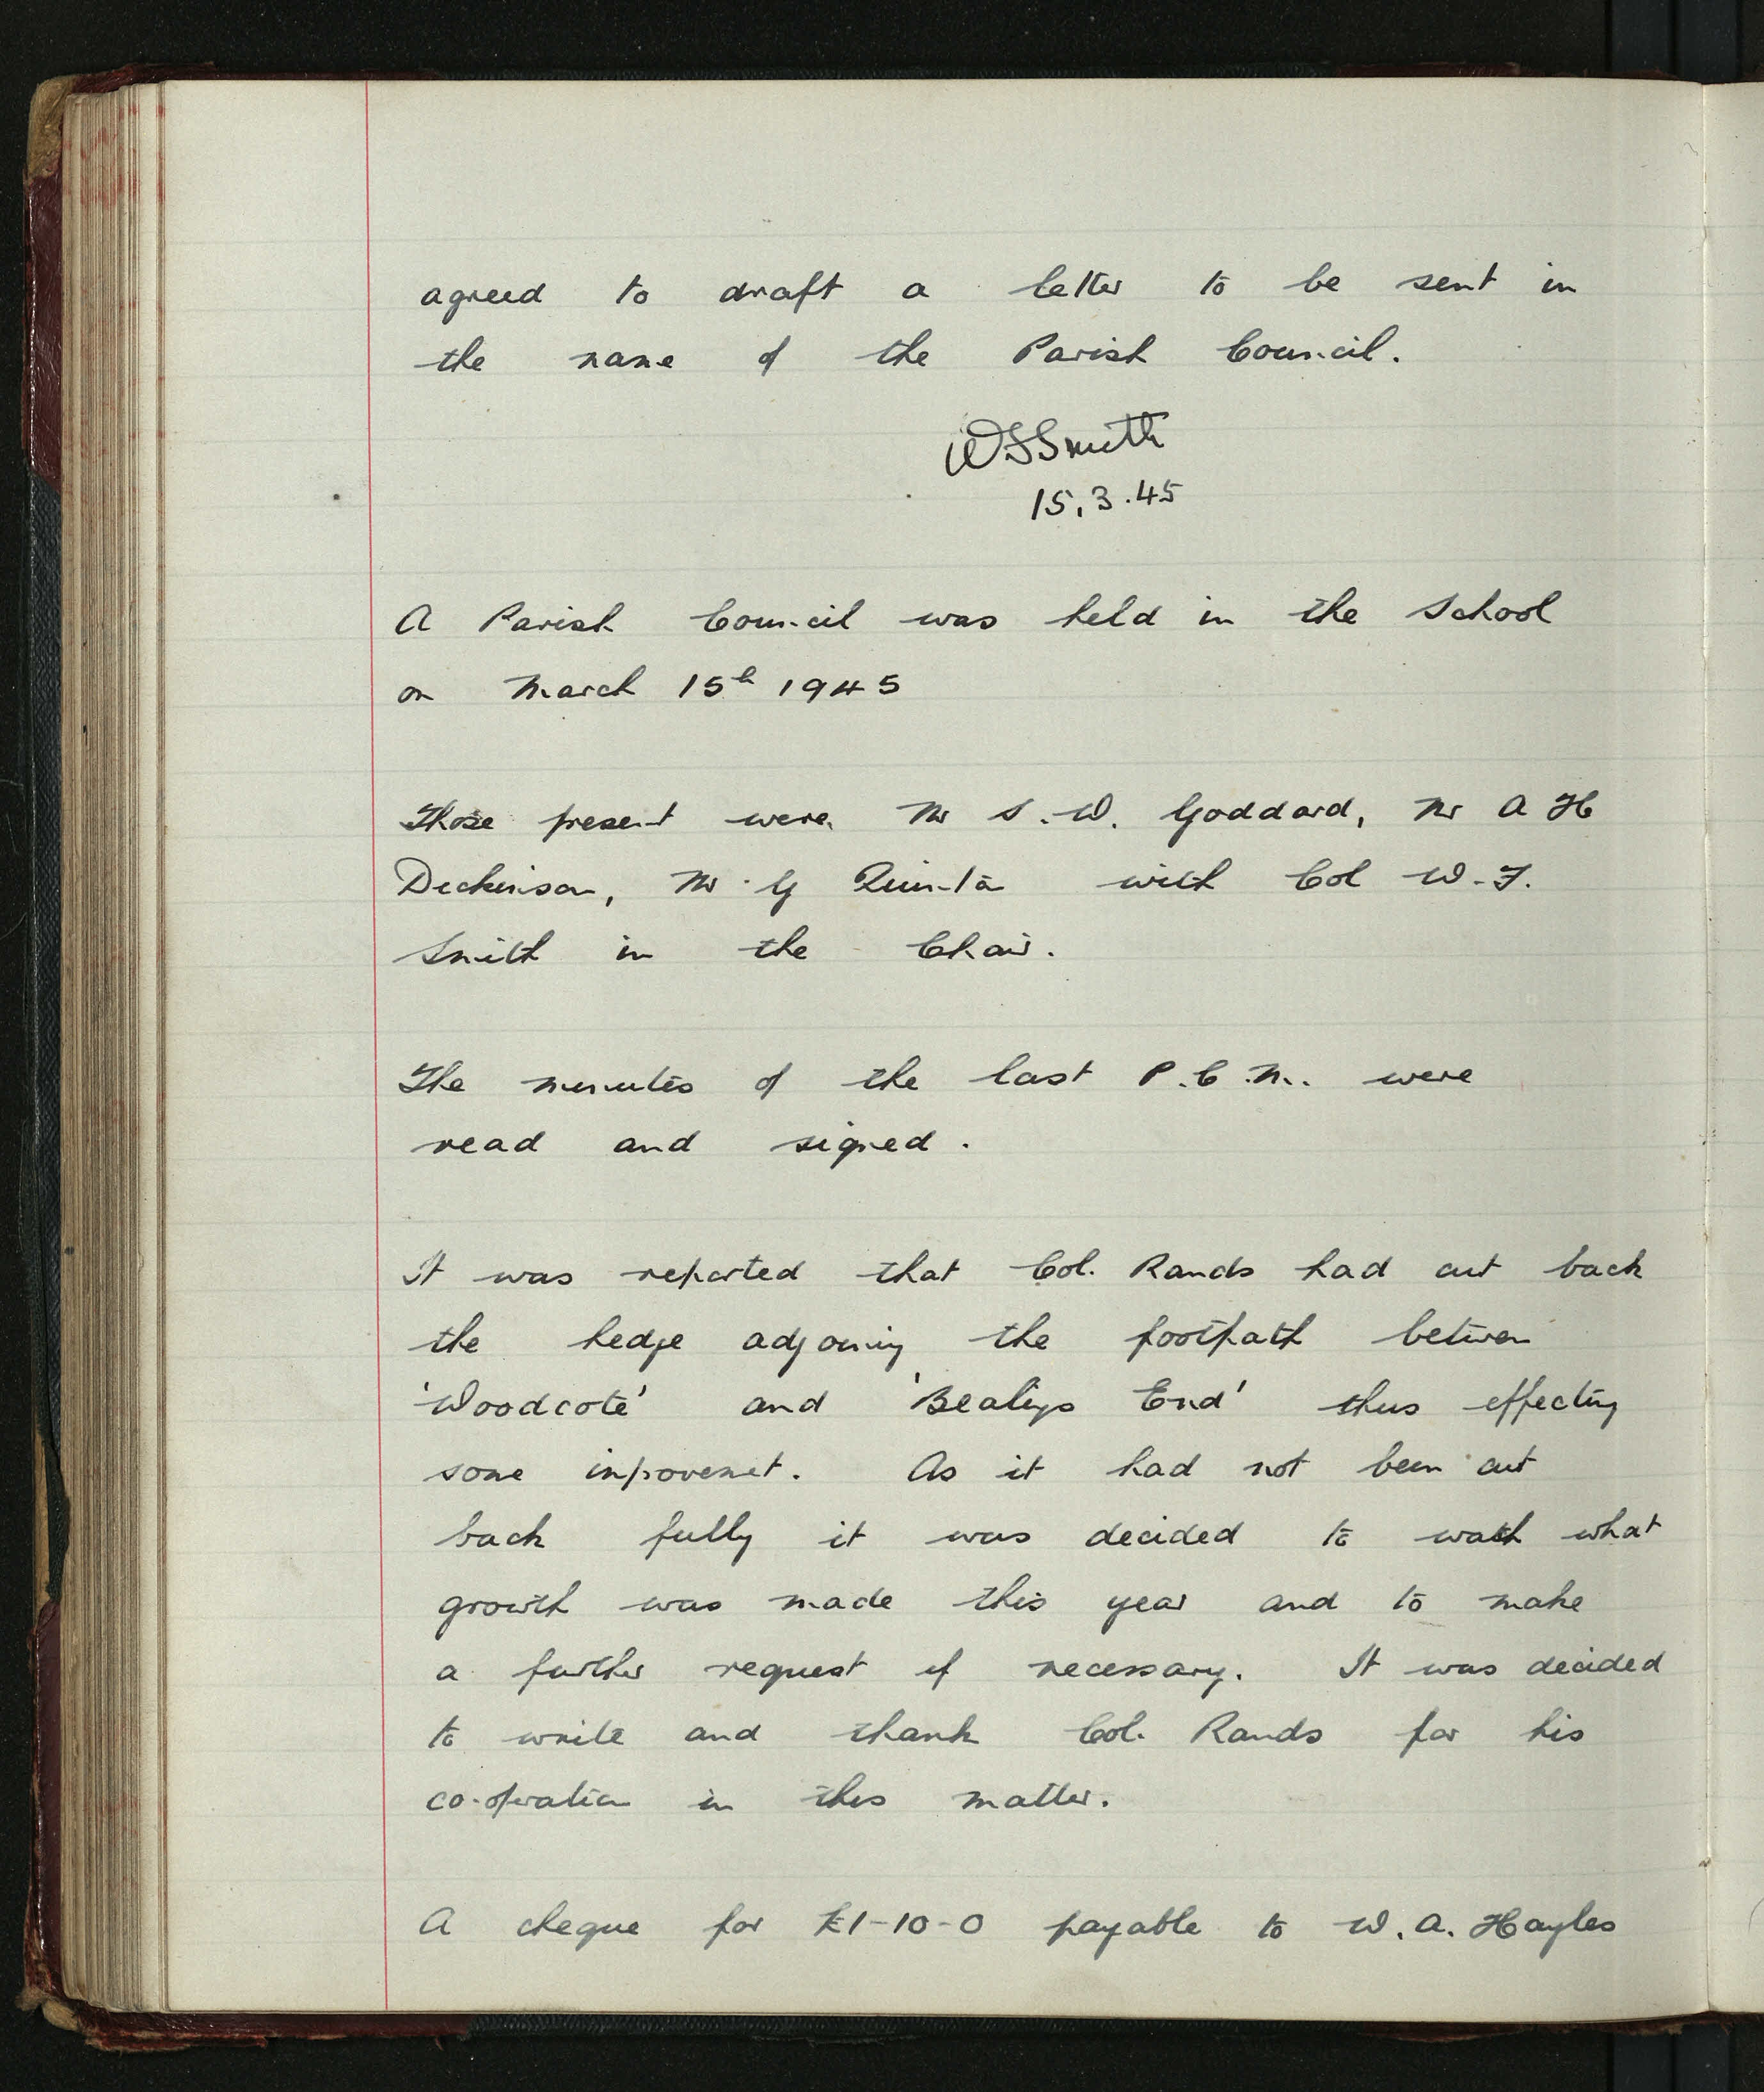 agreed to draft a letter to be sent in
the name of the Parish Council.
WFSmith
15.3.45
A Parish Council was held in the School
on March 15th 1945
Those present were Mr S.W. Goddard, Mr A H
Dickinson, Mr G Quinta with Col W.F.
Smith in the Chair.
The minutes of the last P.C.M. were
read and signed.
It was reported that Col. Rands had cut back
the hedge adjoining the footpath between
'Woodcote' and 'Bealings End' thus effecting
some improvement. As it had not been cut
back fully it was decided to watch what
growth was made this year and to make
a further request if necessary. It was decided
to write and thank Col. Rands for his
co-operation in this matter.
A cheque for £1-10-0 payable to W.A. Hayles